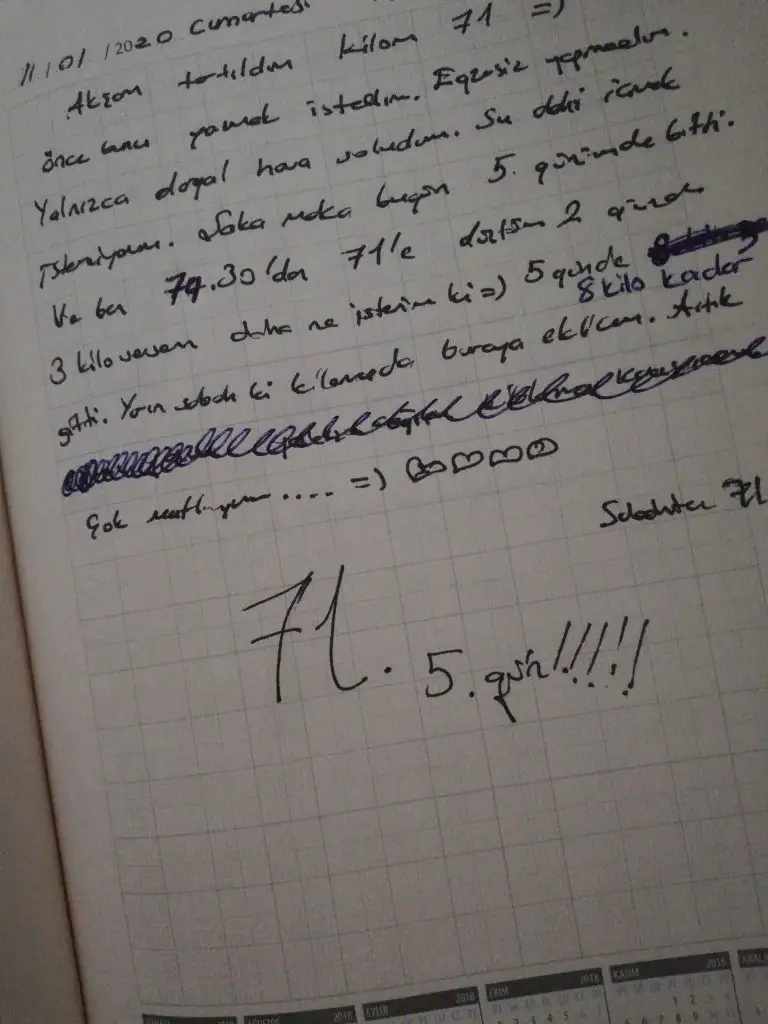 11/01/2020 Cumartesi
Akşam tartıldım kilom 71 =)
önce bunu yazmak istedim. Egzersiz yapmadım.
Yalnızca doğal hava soludum. Su dahi içmek
istemiyorum. Şaka maka bugün 5. günümde bitti.
Ve ben 74.30'dan 71'e düştüm 2 günde
3 kilo versem daha ne isterim ki =) 5 günde
8 kilo kadar
gitti. Yarın sabah ki kilomuda buraya eklicem. Artık
Çok mutluyum .... =)
Sabahta 71
71. 5. gün!!!!!
2018 2018
EYLÜL 2018
EKİM 2018
KASIM 2018
ARALIK